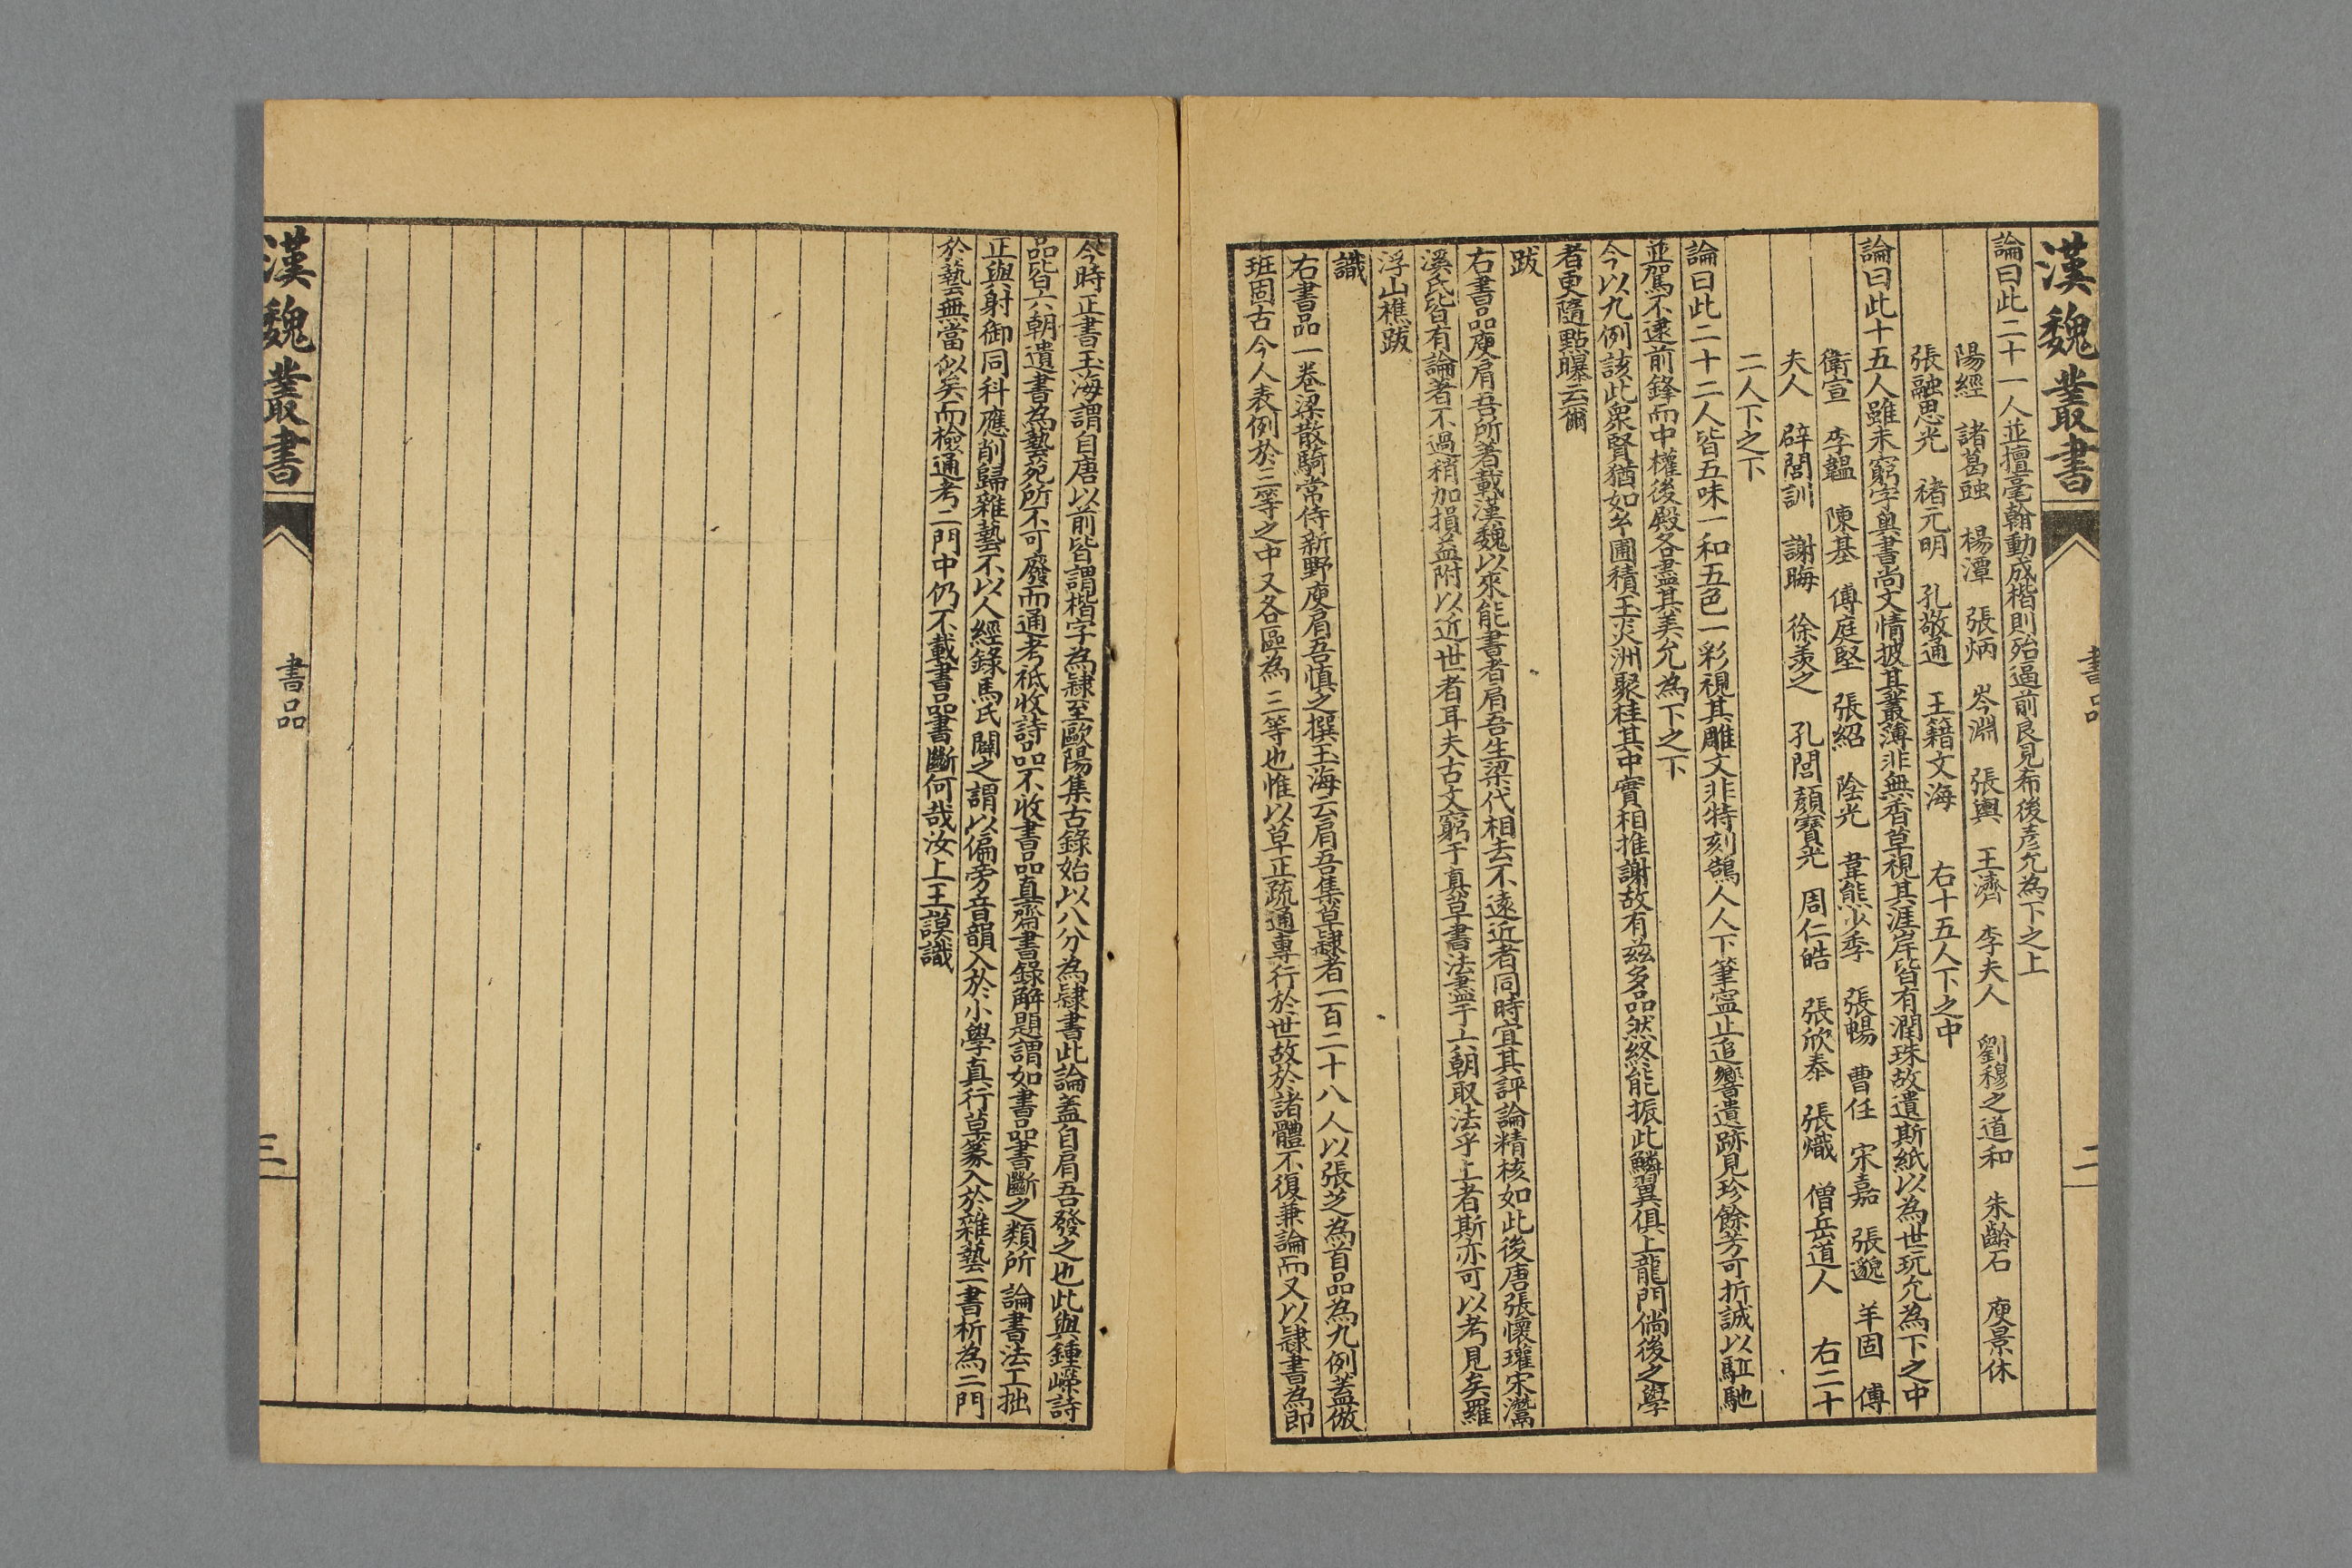 漢魏叢書
書品
二
論曰此二十一人並擅毫翰動成楷則殆逼前良見希後彥允為下之上
陽經　諸葛融　楊潭　張炳　岑淵　張輿　王濟　李夫人　劉穆之道和　朱齡石　庾景休
張融思光　褚元明　孔敬通　王籍文海　右十五人下之中
論曰此十五人雖未窮字奧書尚文情披其叢薄非無香草視其涯岸皆有潤珠故遺斯紙以為世玩允為下之中
衛宣　李韞　陳基　傅庭堅　張紹　陰光　韋熊少季　張暢　曹任　宋嘉　張邈　羊固　傅
夫人　辟閭訓　謝晦　徐羨之　孔閭　顏寶光　周仁皓　張欣泰　張熾　僧岳道人　右二十
二人下之下
論曰此二十二人皆五味一和五色一彩視其雕文非特刻鵠人人下筆寧止追響遺跡見珍餘芳可折誠以駈馳
並駕不逮前鋒而中權後殿各盡其美允為下之下
今以九例該此眾賢猶如玄圃積玉炎洲聚桂其中實相推謝故有茲多品然終能振此鱗翼俱上龍門倘後之學
者更隨點曝云爾
跋
右書品庾肩吾所著載漢魏以來能書者肩吾生梁代相去不遠近者同時宜其評論精核如此後唐張懷瓘宋濳
溪氏皆有論著不過稍加損益附以近世者耳夫古文窮于真草書法盡于六朝取法乎上者斯亦可以考見矣羅
浮山樵跋
識
右書品一卷梁散騎常侍新野庾肩吾慎之撰玉海云肩吾集草隸者一百二十八人以張芝為首品為九例蓋倣
班固古今人表例於三等之中又各區為三等也惟以草正疏通專行於世故於諸體不復兼論而又以隸書為即
今時正書玉海謂自唐以前皆謂楷字為隸至歐陽集古錄始以八分為隸書此論蓋自肩吾發之也此與鍾嶸詩
品皆六朝遺書為藝苑所不可廢而通考祗收詩品不收書品直齋書錄解題謂如書品書斷之類所論書法工拙
正與射御同科應削歸雜藝不以入經錄馬氏闢之謂以偏旁音韻入於小學真行草篆入於雜藝一書析為二門
於藝無當似矣而檢通考二門中仍不載書品書斷何哉汝上王謨識
漢魏叢書
書品
三